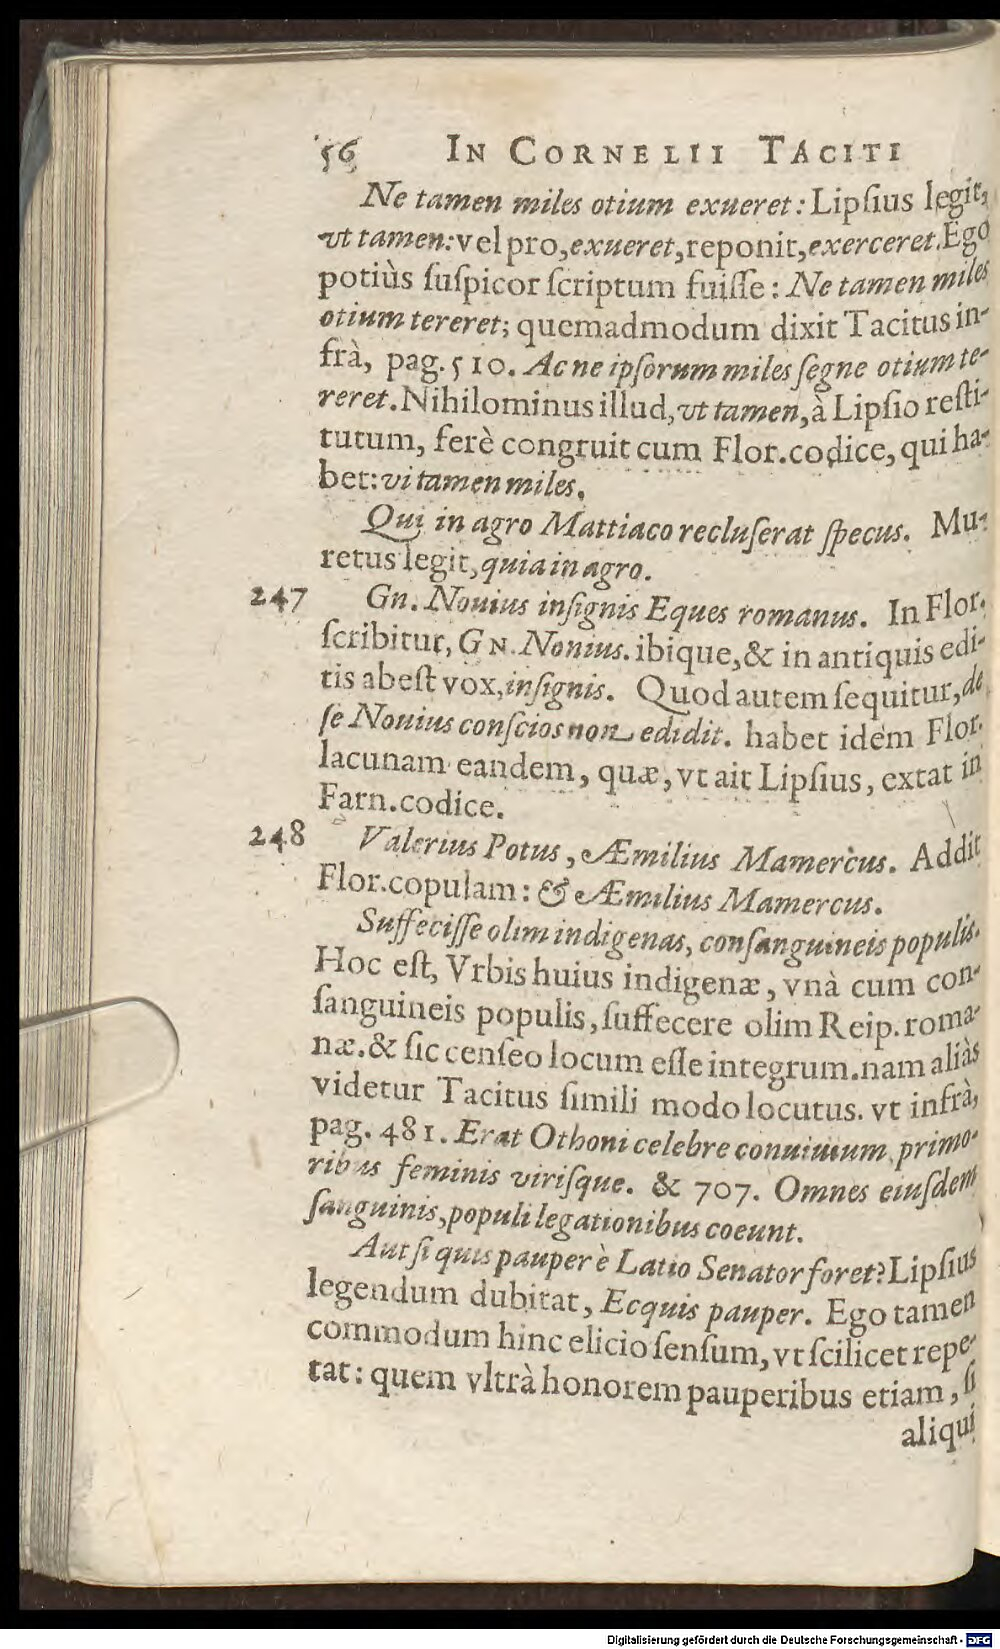 56 IN CORNELII TACITI
Ne tamen miles otium exueret: Lipſius legit,
vt tamen: vel pro, exueret, reponit, exerceret. Ego
potiùs ſuſpicor ſcriptum fuiſſe: Ne tamen miles
otium tereret; quemadmodum dixit Tacitus in-
frà, pag. 510. Ac ne ipſorum miles ſegne otium te-
reret. Nihilominus illud, vt tamen, à Lipſio reſti-
tutum, ferè congruit cum Flor. codice, qui ha-
bet: vi tamen miles.
Qui in agro Mattiaco recluſerat ſpecus. Mu-
retus legit, quia in agro.
247 Gn. Nouius inſignis Eques romanus. In Flor.
ſcribitur, GN. Nonius. ibique, & in antiquis edi-
tis abeſt vox, inſignis. Quod autem ſequitur, de
ſe Nouius conſcios non edidit. habet idem Flor.
lacunam eandem, quæ, vt ait Lipſius, extat in
Farn. codice.
248 Valerius Potus, Æmilius Mamercus. Addit
Flor. copulam: & Æmilius Mamercus.
Suffeciſſe olim indigenas, conſanguineis populis.
Hoc eſt, Vrbis huius indigenæ, vnà cum con-
ſanguineis populis, ſuffecere olim Reip. roma-
næ. & ſic cenſeo locum eſſe integrum. nam aliàs
videtur Tacitus ſimili modo locutus. vt infrà,
pag. 481. Erat Othoni celebre conuiuium primo-
ribus feminis viriſque. & 707. Omnes eiuſdem
ſanguinis, populi legationibus coeunt.
Aut ſi quis pauper è Latio Senator foret? Lipſius
legendum dubitat, Ecquis pauper. Ego tamen
commodum hinc elicio ſenſum, vt ſcilicet repe-
tat: quem vltrà honorem pauperibus etiam, ſi
aliqui
Digitalisierung gefördert durch die Deutsche Forschungsgemeinschaft - DFG